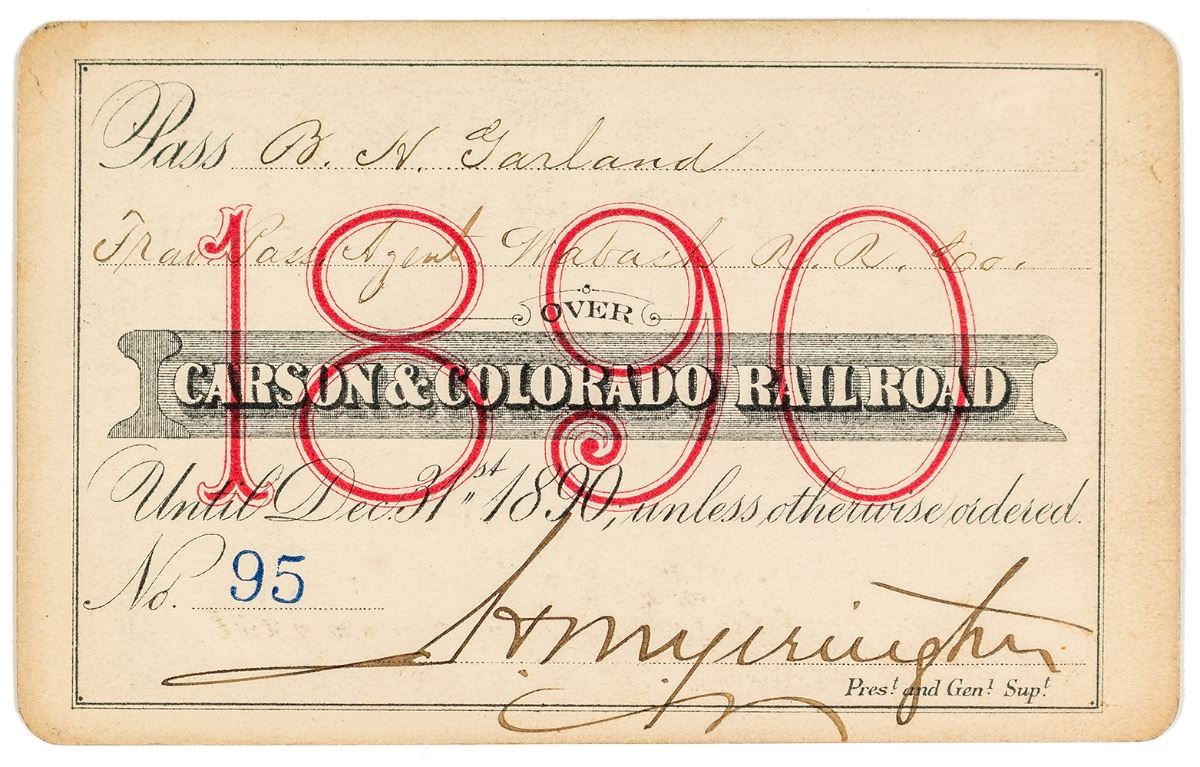 Pass B. H. Garland
Trav Pass Agent Wabash R. R. Co.
1890
OVER
CARSON & COLORADO RAILROAD
Until Dec. 31st 1890, unless otherwise ordered.
No. 95
H M Yerington
Prest. and Genl. Supt.